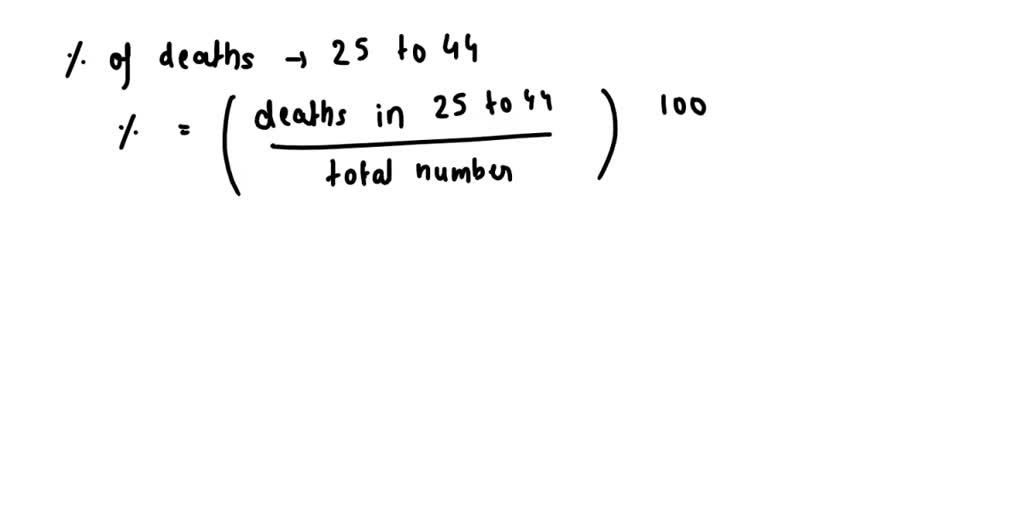 % of deaths → 25 to 44
% = ( deaths in 25 to 44 ) 100
total number